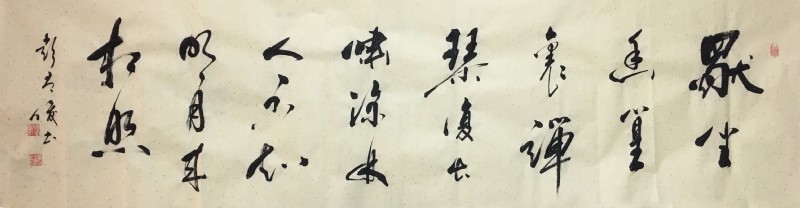 獨坐
幽篁
裏彈
琴復长
嘯深林
人不知
明月来
相照
彭 书